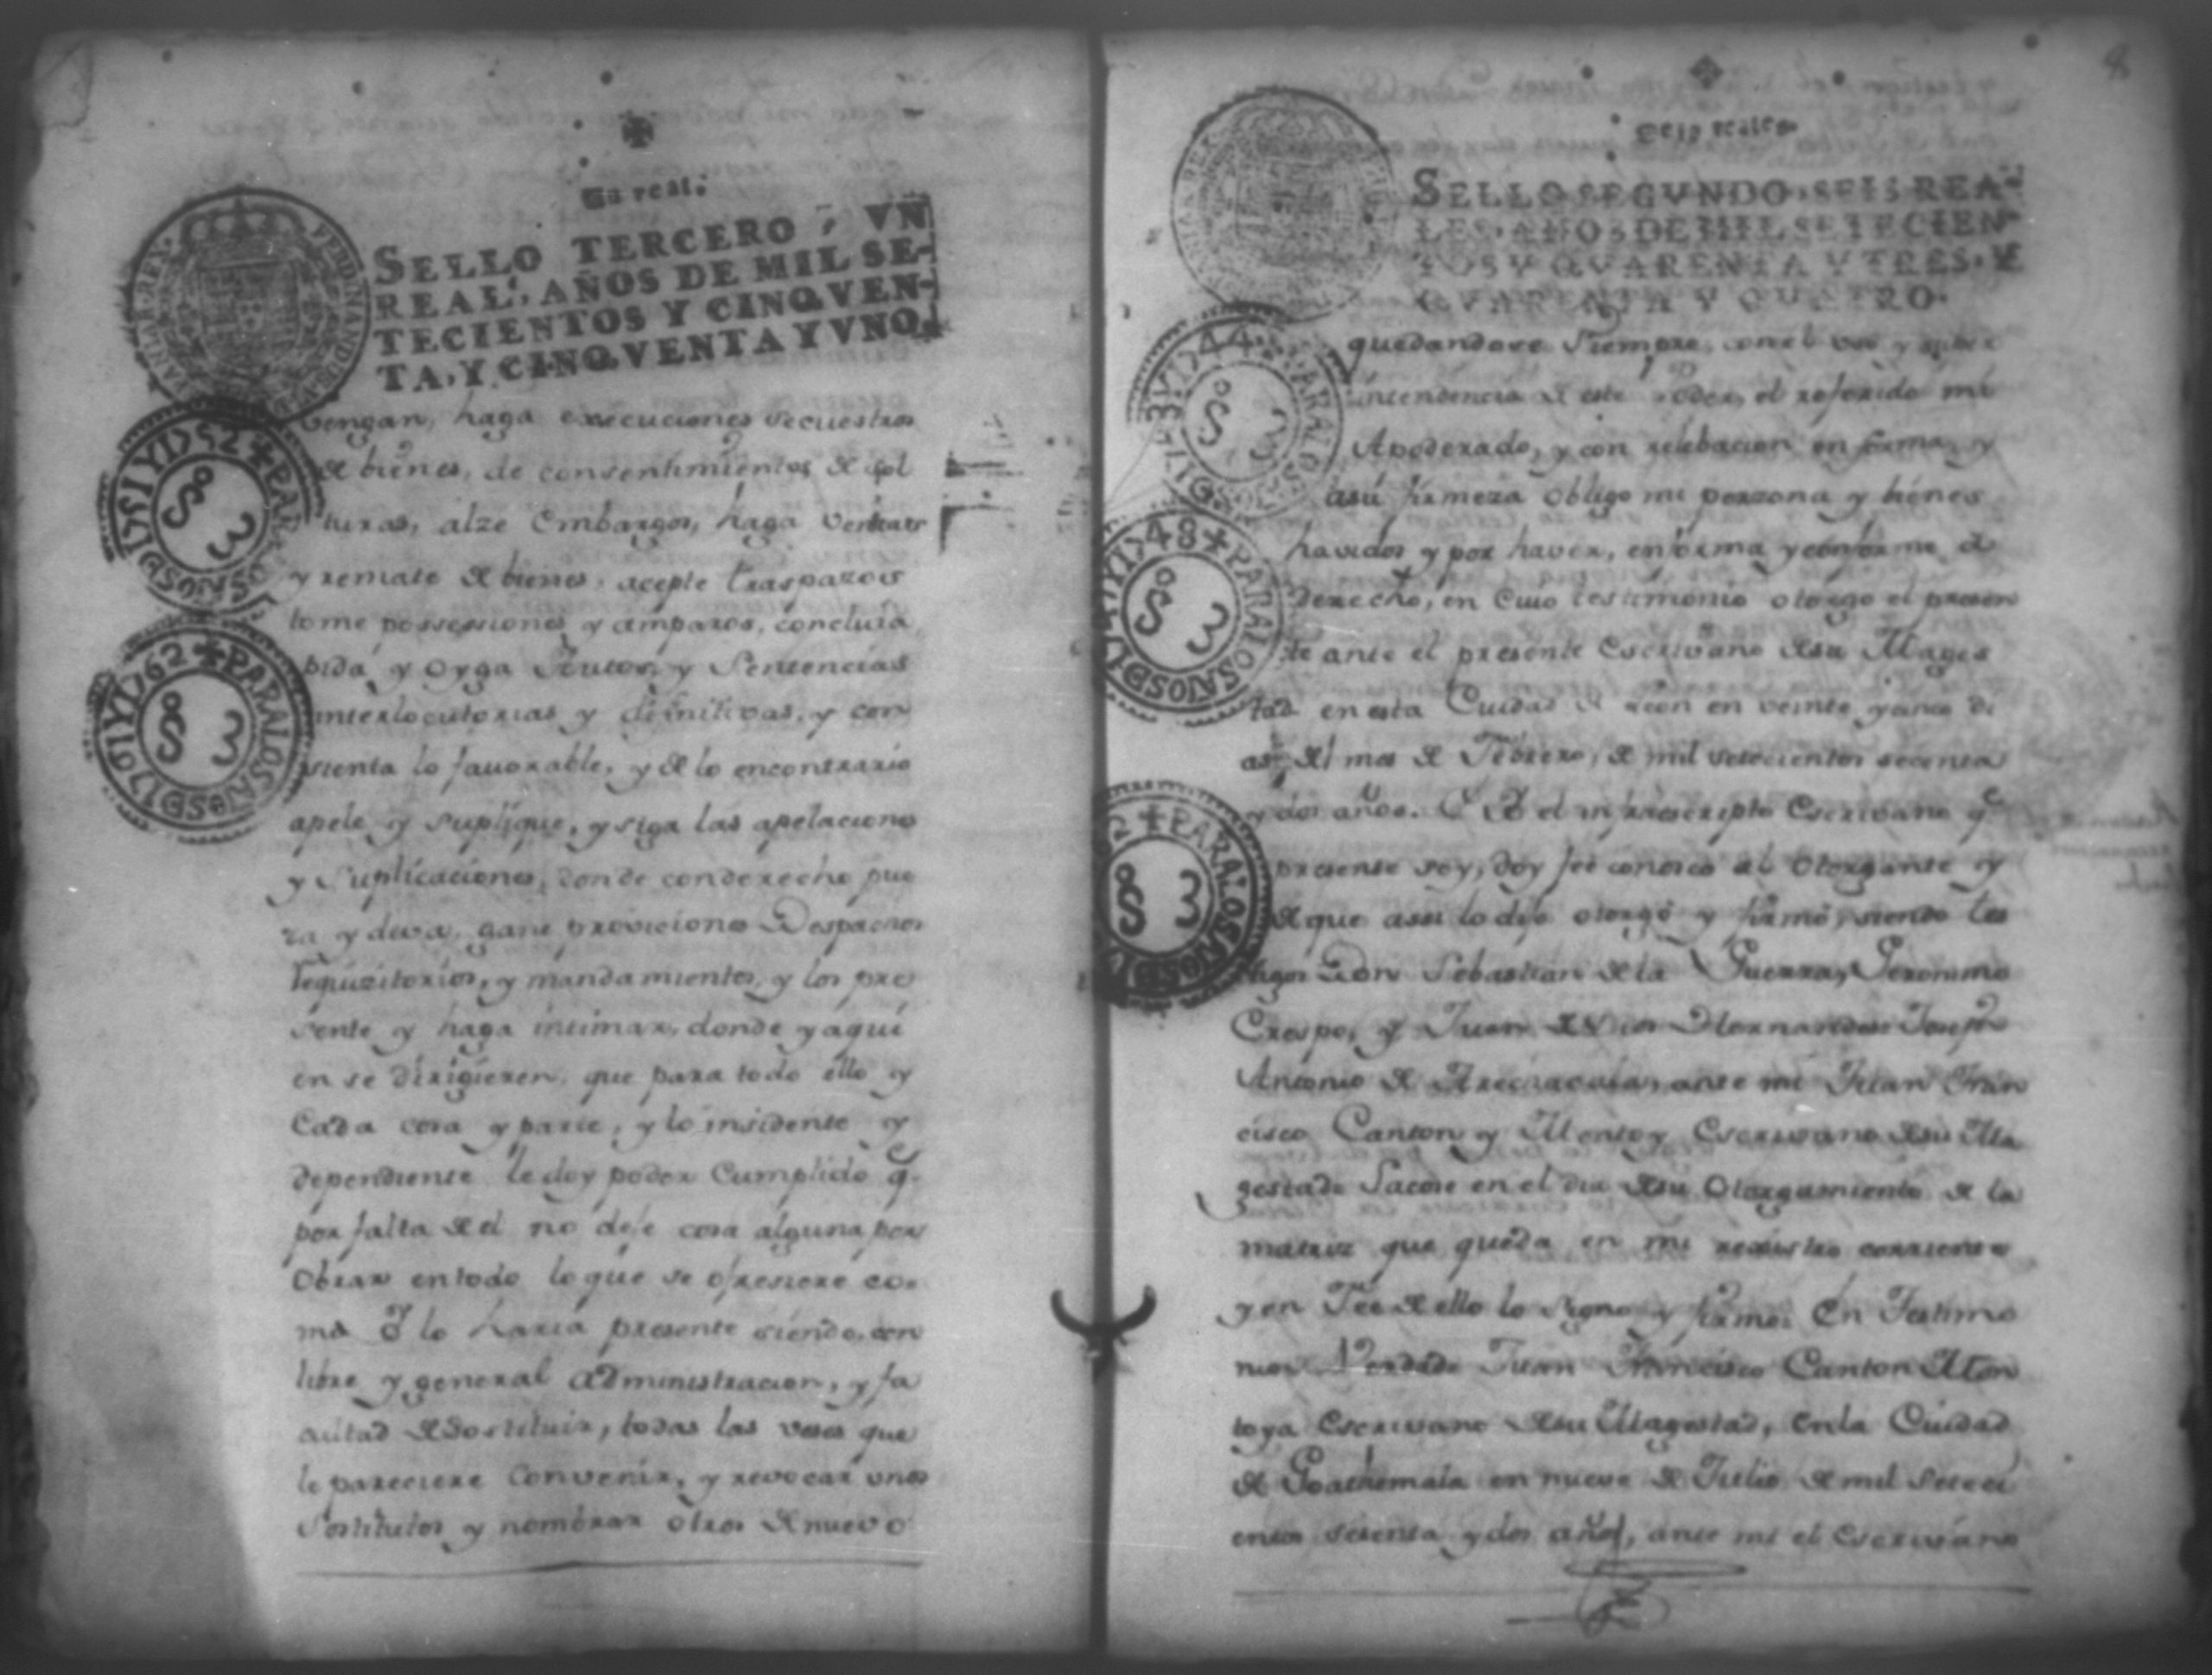 Un real.
SELLO TERCERO, VN
REAL, AÑOS DE MIL SE-
TECIENTOS Y CINQVEN-
TA, Y CINQVENTA Y VNO.
vengan, haga execuciones secuestros
de bienes, de consentimientos de sol
turas, alze Embargos, haga ventas
y remate de bienes, acepte traspazos
tome possessiones y amparos, concluia
pida y oyga Autos y Sentencias
interlocutorias y difinitivas, y con
sienta lo favorable, y de lo encontrario
apele y suplique, y siga las apelaciones
y Suplicaciones, donde con derecho pue
da y deva, gane proviciones Despachos
requizitorios, y mandamientos, y los pre
sente y haga intimar, donde y aqui
en se dirigieren, que para todo ello y
Cada cosa y parte, y lo insidente y
dependiente le doy poder Cumplido q.e
por falta de el no deje cosa alguna por
Obrar en todo lo que se ofresiere co-
mo Yo lo haria presente siendo, con
libre y general administracion, y fa
cultad de Sostituir, todas las veses que
le pareciere Convenir, y revocar unos
Sostitutos y nombrar otros de nuevo
PARA LOS AÑOS DE 1751 Y 1752
S 3
PARA LOS AÑOS DE 1761 Y 1762
S 3
8
Seis reales
SELLO SEGVNDO, SEIS REA-
LES, AÑOS DE MIL SETECIEN-
TOS Y QVARENTA Y TRES, Y
QVARENTA Y QUATRO.
quedandose Siempre, con el uso y super
intendencia de este Poder, el referido mi
Apoderado, y con relebacion en forma, y
asu firmeza Obligo mi perzona y bienes
havidos y por haver, en forma y conforme a
derecho, en Cuio testimonio otorgo el presen
te ante el presente Escrivano de su Mages
tad en esta Ciudad de Leon en veinte y cinco di
as del mes de Febrero, de mil setecientos secenta
y dos años. E Yo el infraescripto Escrivano q.e
presente soy, doy feé conosco al Otorgante y
de que assi lo dijo otorgó y firmó, siendo tes
tigos Don Sebastian de la Guerra, Geronimo
Crespo, y Juan de Dios Hernandes Joseph
Antonio de Arechavala, ante mi Juan Fran
cisco Canton y Montoy Escrivano de su Ma
gestad Sacose en el dia de su Otorgamiento de la
matriz que queda en mi registro corriente
y en Feé de ello lo Signo y firmo. En Testimo
nio Verdad Juan Francisco Canton Mon
toya Escrivano de su Magestad, En la Ciudad
de Goathemala en nueve de Julio de mil seteci
entos sesenta y dos años, ante mi el Escrivano
S 3
PARA LOS AÑOS DE 1747 Y 1748
S 3
PARA LOS AÑOS DE
S 3